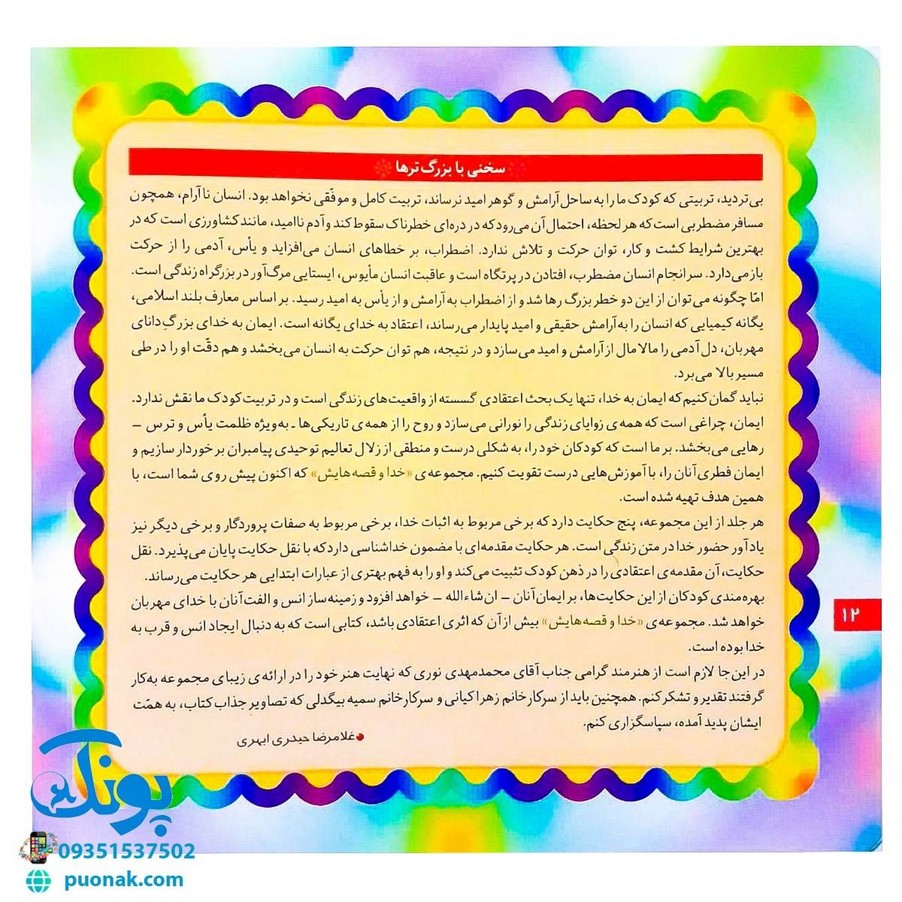 سخنی با بزرگ‌ترها
بی‌تردید، تربیتی که کودک ما را به ساحل آرامش و گوهر امید نرساند، تربیت کامل و موفّقی نخواهد بود. انسان ناآرام، همچون
مسافر مضطربی است که هر لحظه، احتمال آن می‌رود که در دره‌ای خطرناک سقوط کند و آدم ناامید، مانند کشاورزی است که در
بهترین شرایط کشت و کار، توان حرکت و تلاش ندارد. اضطراب، بر خطاهای انسان می‌افزاید و یأس، آدمی را از حرکت
بازمی‌دارد. سرانجام انسان مضطرب، افتادن در پرتگاه است و عاقبت انسان مأیوس، ایستایی مرگ‌آور در بزرگراه زندگی است.
امّا چگونه می‌توان از این دو خطر بزرگ رها شد و از اضطراب به آرامش و از یأس به امید رسید. بر اساس معارف بلند اسلامی،
یگانه کیمیایی که انسان را به آرامش حقیقی و امید پایدار می‌رساند، اعتقاد به خدای یگانه است. ایمان به خدای بزرگِ دانای
مهربان، دل آدمی را مالامال از آرامش و امید می‌سازد و در نتیجه، هم توان حرکت به انسان می‌بخشد و هم دقّت او را در طی
مسیر بالا می‌برد.
نباید گمان کنیم که ایمان به خدا، تنها یک بحث اعتقادی گسسته از واقعیت‌های زندگی است و در تربیت کودک ما نقش ندارد.
ایمان، چراغی است که همه‌ی زوایای زندگی را نورانی می‌سازد و روح را از همه‌ی تاریکی‌ها ـ به‌ویژه ظلمت یأس و ترس –
رهایی می‌بخشد. بر ما است که کودکان خود را، به شکلی درست و منطقی از زلال تعالیم توحیدی پیامبران برخوردار سازیم و
ایمان فطری آنان را، با آموزش‌هایی درست تقویت کنیم. مجموعه‌ی «خدا و قصه‌هایش» که اکنون پیش روی شما است، با
همین هدف تهیه شده است.
هر جلد از این مجموعه، پنج حکایت دارد که برخی مربوط به اثبات خدا، برخی مربوط به صفات پروردگار و برخی دیگر نیز
یادآور حضور خدا در متن زندگی است. هر حکایت مقدمه‌ای با مضمون خداشناسی دارد که با نقل حکایت پایان می‌پذیرد. نقل
حکایت، آن مقدمه‌ی اعتقادی را در ذهن کودک تثبیت می‌کند و او را به فهم بهتری از عبارات ابتدایی هر حکایت می‌رساند.
بهره‌مندی کودکان از این حکایت‌ها، بر ایمان آنان – ان‌شاءالله – خواهد افزود و زمینه‌ساز انس و الفت آنان با خدای مهربان
خواهد شد. مجموعه‌ی «خدا و قصه‌هایش» بیش از آن که اثری اعتقادی باشد، کتابی است که به دنبال ایجاد انس و قرب به
خدا بوده است.
در این‌جا لازم است از هنرمند گرامی جناب آقای محمدمهدی نوری که نهایت هنر خود را در ارائه‌ی زیبای مجموعه به‌کار
گرفتند تقدیر و تشکر کنم. همچنین باید از سرکار خانم زهرا کیانی و سرکار خانم سمیه بیگدلی که تصاویر جذاب کتاب، به همّت
ایشان پدید آمده، سپاسگزاری کنم.
غلامرضا حیدری ابهری
۱۲
پونک
09351537502
puonak.com